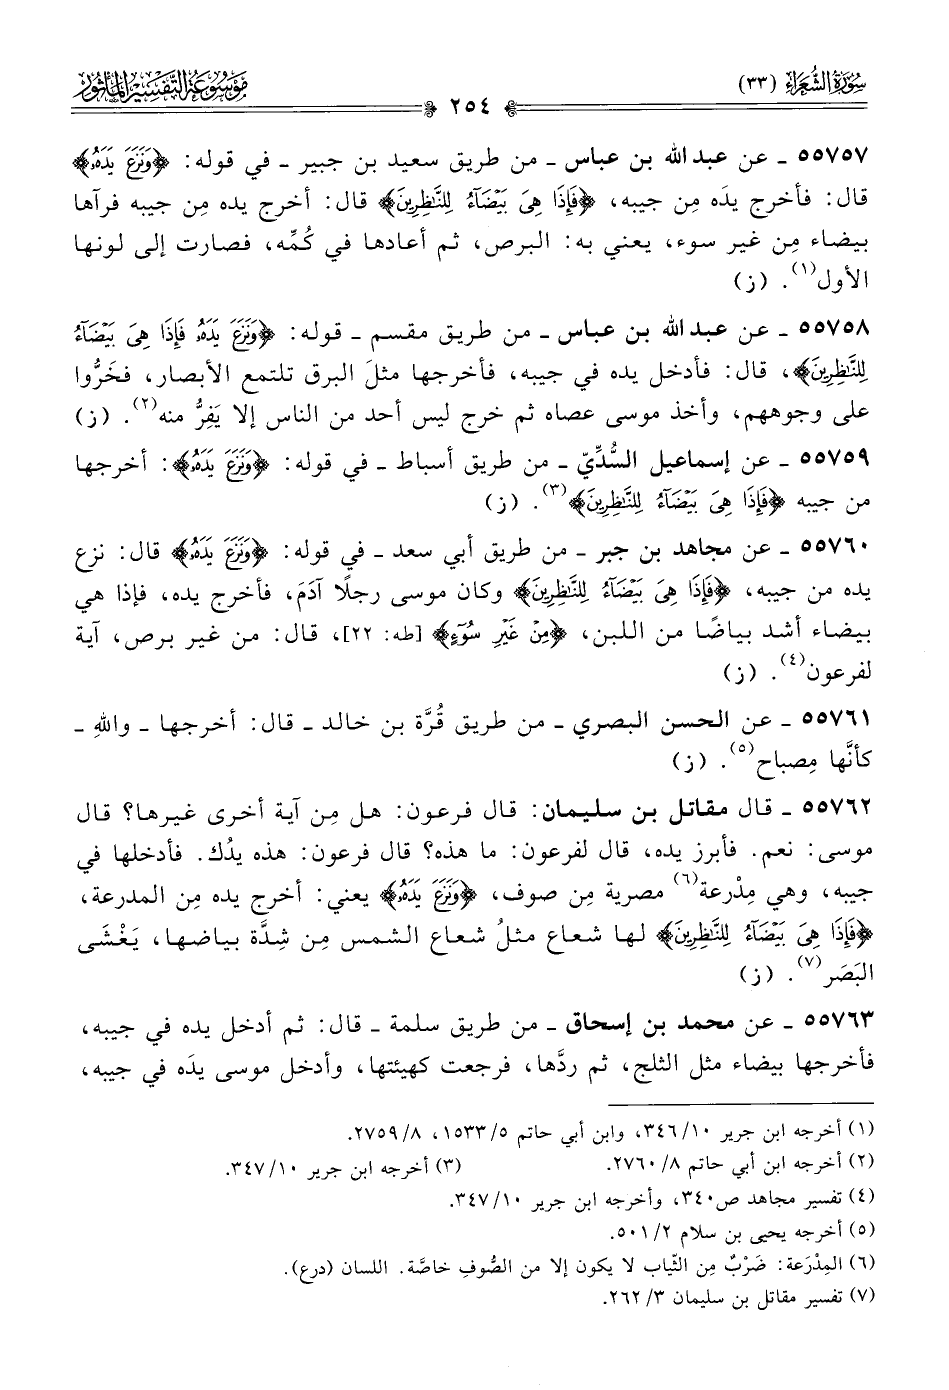 سُورَةُ الشُّعَرَاءِ (٣٣)
مَوْسُوعَة التَّفْسِيْر المَأْثُور
٢٥٤
٥٥٧٥٧ ـ عن عبد الله بن عباس ـ من طريق سعيد بن جبير ـ في قوله: ﴿وَنَزَعَ يَدَهُۥ﴾
قال: فأخرج يدَه مِن جيبه، ﴿فَإِذَا هِىَ بَيْضَآءُ لِلنَّٰظِرِينَ﴾ قال: أخرج يده مِن جيبه فرآها
بيضاء مِن غير سوء، يعني به: البرص، ثم أعادها في كُمِّه، فصارت إلى لونها
الأول(١). (ز)
٥٥٧٥٨ ـ عن عبد الله بن عباس ـ من طريق مقسم ـ قوله: ﴿وَنَزَعَ يَدَهُۥ فَإِذَا هِىَ بَيْضَآءُ
لِلنَّٰظِرِينَ﴾، قال: فأدخل يده في جيبه، فأخرجها مثلَ البرق تلتمع الأبصار، فخَرُّوا
على وجوههم، وأخذ موسى عصاه ثم خرج ليس أحد من الناس إلا يَفِرُّ منه(٢). (ز)
٥٥٧٥٩ ـ عن إسماعيل السُّدِّيّ ـ من طريق أسباط ـ في قوله: ﴿وَنَزَعَ يَدَهُۥ﴾: أخرجها
من جيبه ﴿فَإِذَا هِىَ بَيْضَآءُ لِلنَّٰظِرِينَ﴾(٣). (ز)
٥٥٧٦٠ ـ عن مجاهد بن جبر ـ من طريق أبي سعد ـ في قوله: ﴿وَنَزَعَ يَدَهُۥ﴾ قال: نزع
يده من جيبه، ﴿فَإِذَا هِىَ بَيْضَآءُ لِلنَّٰظِرِينَ﴾ وكان موسى رجلًا آدَمَ، فأخرج يده، فإذا هي
بيضاء أشد بياضًا من اللبن، ﴿مِنْ غَيْرِ سُوٓءٍ﴾ [طه: ٢٢]، قال: من غير برص، آية
لفرعون(٤). (ز)
٥٥٧٦١ ـ عن الحسن البصري ـ من طريق قُرَّة بن خالد ـ قال: أخرجها ـ واللهِ ـ
كأنَّها مِصباح(٥). (ز)
٥٥٧٦٢ ـ قال مقاتل بن سليمان: قال فرعون: هل مِن آية أخرى غيرها؟ قال
موسى: نعم. فأبرز يده، قال لفرعون: ما هذه؟ قال فرعون: هذه يدُك. فأدخلها في
جيبه، وهي مِدْرعة(٦) مصرية مِن صوف، ﴿وَنَزَعَ يَدَهُۥ﴾ يعني: أخرج يده مِن المدرعة،
﴿فَإِذَا هِىَ بَيْضَآءُ لِلنَّٰظِرِينَ﴾ لها شعاع مثلُ شعاع الشمس مِن شِدَّة بياضها، يَغْشَى
البَصَر(٧). (ز)
٥٥٧٦٣ ـ عن محمد بن إسحاق ـ من طريق سلمة ـ قال: ثم أدخل يده في جيبه،
فأخرجها بيضاء مثل الثلج، ثم ردَّها، فرجعت كهيئتها، وأدخل موسى يدَه في جيبه،
(١) أخرجه ابن جرير ١٠/ ٣٤٦، وابن أبي حاتم ٥/ ١٥٣٣، ٨/ ٢٧٥٩.
(٢) أخرجه ابن أبي حاتم ٨/ ٢٧٦٠. (٣) أخرجه ابن جرير ١٠/ ٣٤٧.
(٤) تفسير مجاهد ص٣٤٠، وأخرجه ابن جرير ١٠/ ٣٤٧.
(٥) أخرجه يحيى بن سلام ٢/ ٥٠١.
(٦) المِدْرَعة: ضَرْبٌ مِن الثِّياب لا يكون إلا من الصُّوفِ خاصَّة. اللسان (درع).
(٧) تفسير مقاتل بن سليمان ٣/ ٢٦٢.